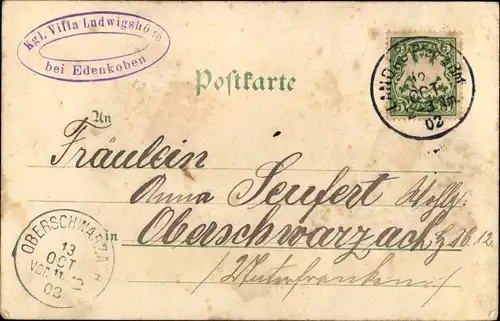 Kgl. Villa Ludwigshöhe
bei Edenkoben
Postkarte
LANDAU
12
OCT
02
An
Fräulein
Anna Seufert
in Oberschwarzach
H. No. 12
(Unterfranken)
OBERSCHWARZACH
13
OCT
VOR. 11-12
02